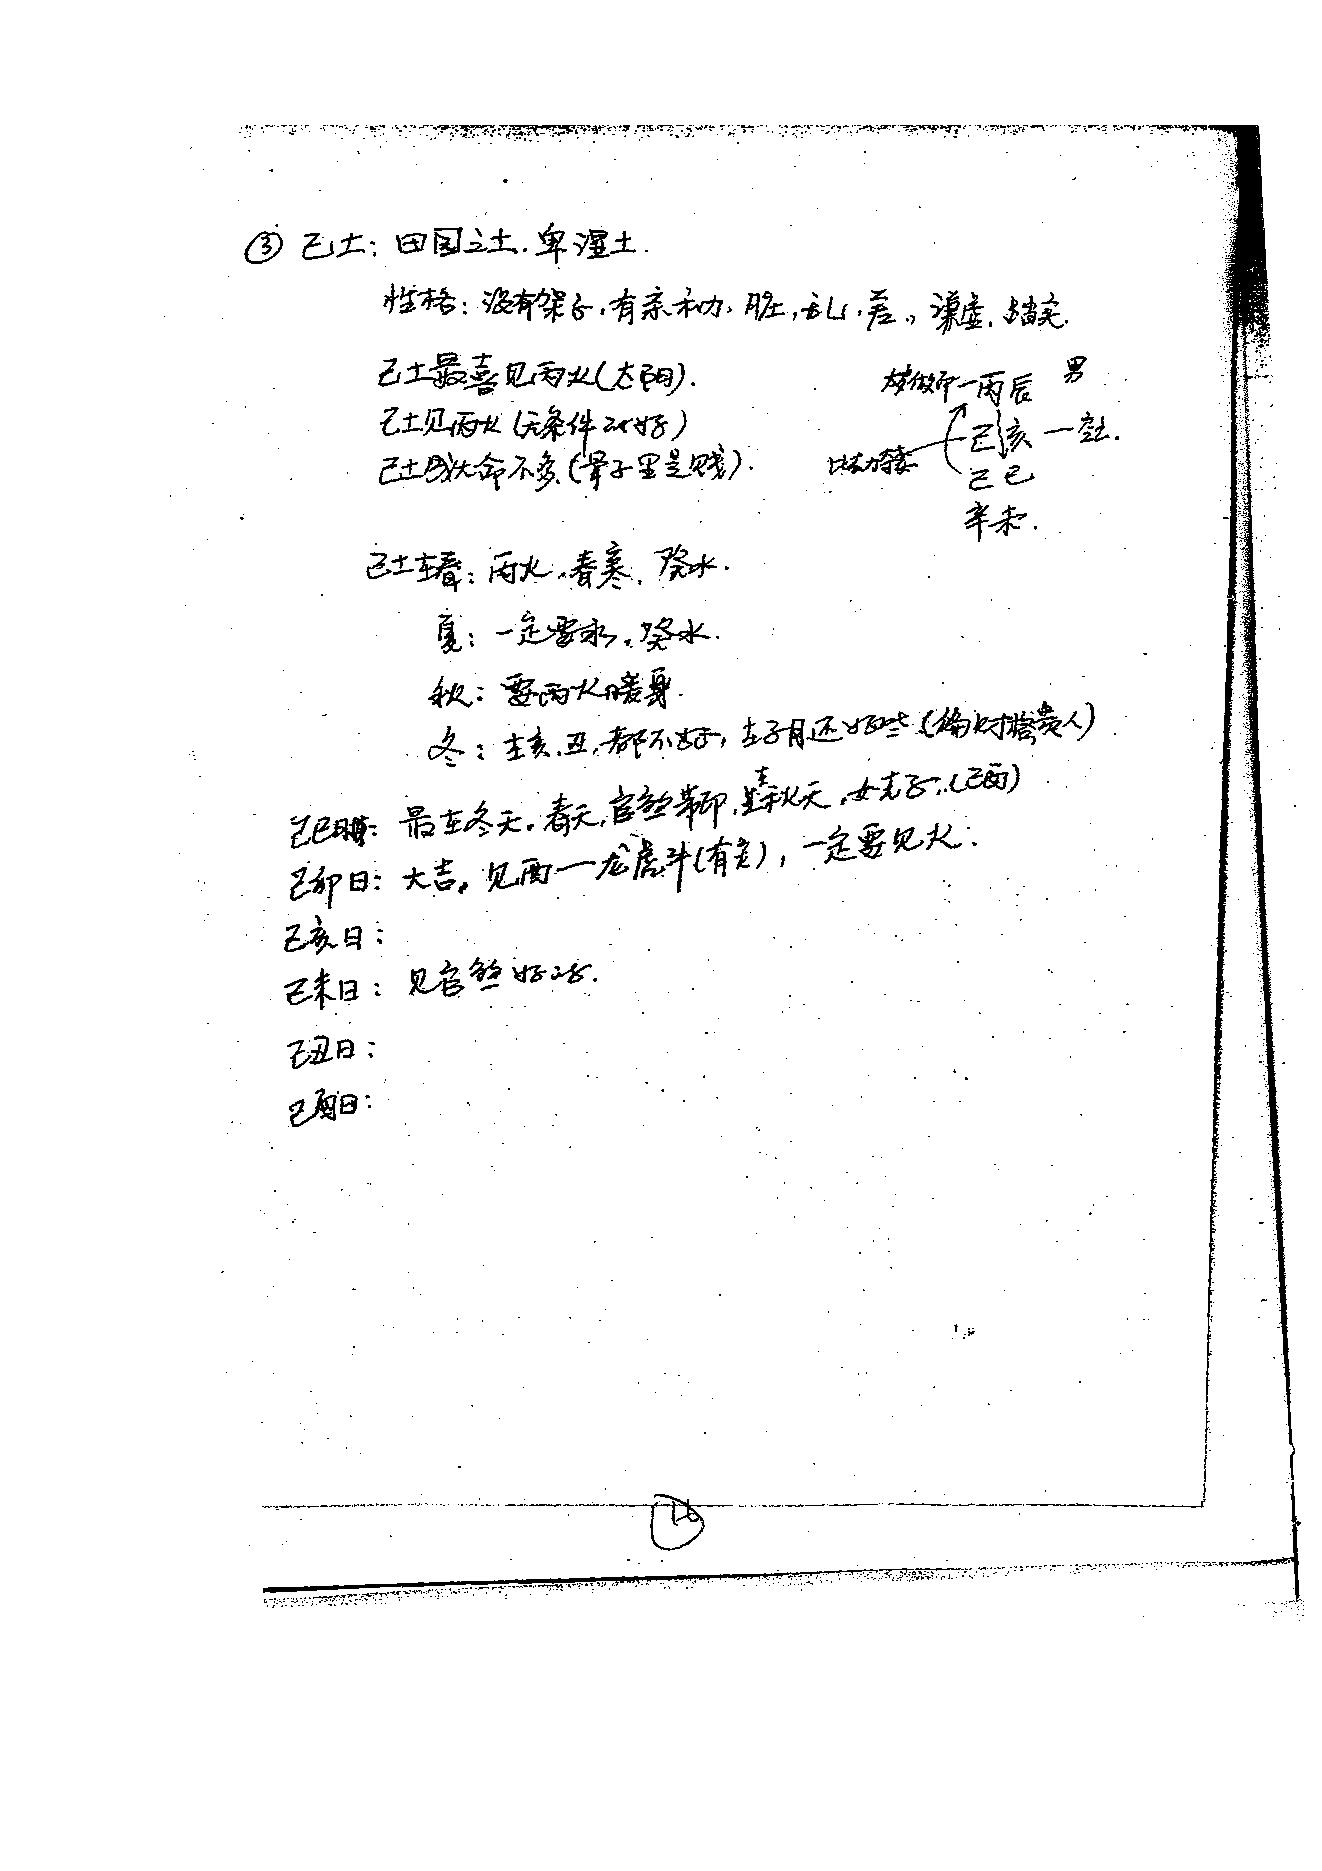 ③ 己土：田园之土.卑湿土.
性格：没有架子.有亲和力.脏,乱.差.,谦虚.踏实.
己土最喜见丙火(太阳).
己土见丙火(无条件的好)
己土成大命不多(骨子里是贱).
男
丙辰
己亥
己巳
辛未.
己土在春：丙火.春寒.癸水.
夏：一定要水.癸水.
秋：要丙火暖身.
冬：在亥.丑,都不好,在子月还好些(偏财格贵人)
己巳日：最在冬天.春天,官煞带印,秋天,(己酉)
己卯日：大吉.见酉一龙虎斗(有克),一定要见火.
己亥日：
己未日：见官煞好些.
己丑日：
己酉日：
16